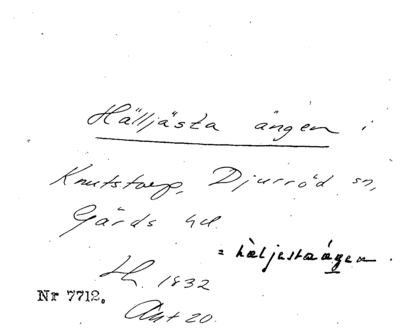 Hälljästa ängen i
Knutstorp, Djurröd sn,
Gärds hd.
= häljestaängen
1832
Nr 7712.
Akt 20.